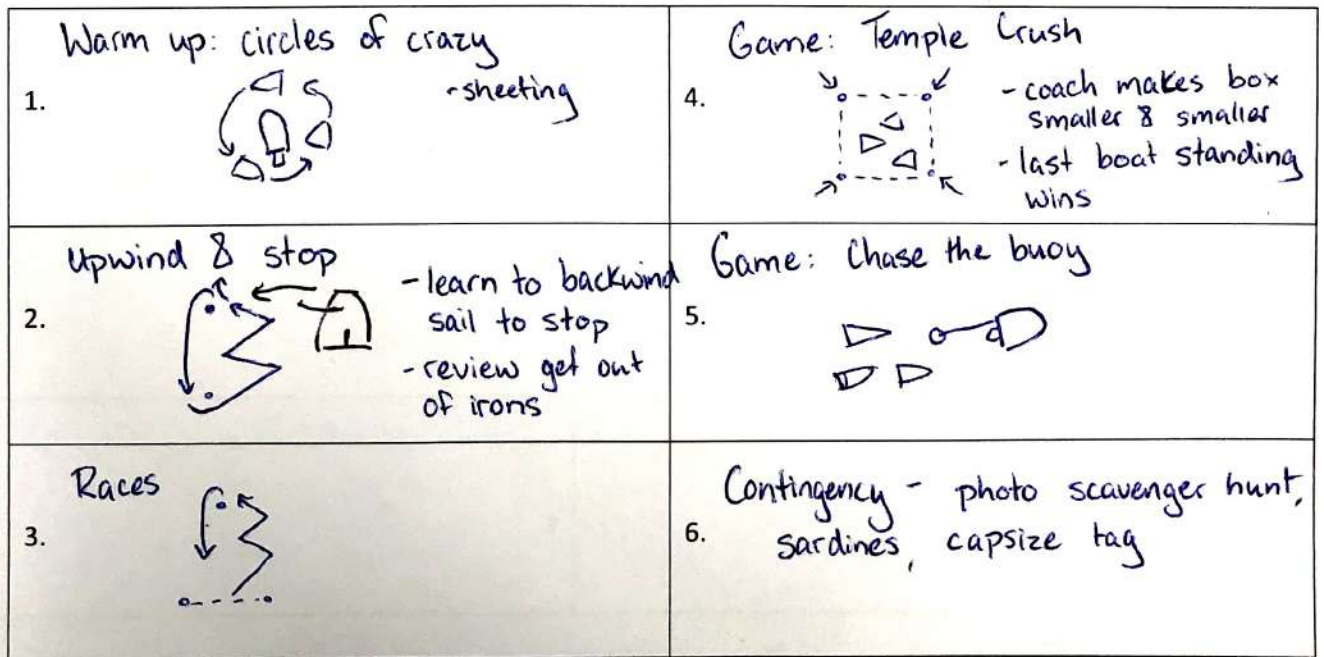 Warm up: circles of crazy
1.
- sheeting
Upwind & stop
2.
- learn to backwind
sail to stop
- review get out
of irons
Races
3.
Game: Temple Crush
4.
- coach makes box
smaller & smaller
- last boat standing
wins
Game: Chase the buoy
5.
Contingency - photo scavenger hunt,
6.
sardines, capsize tag